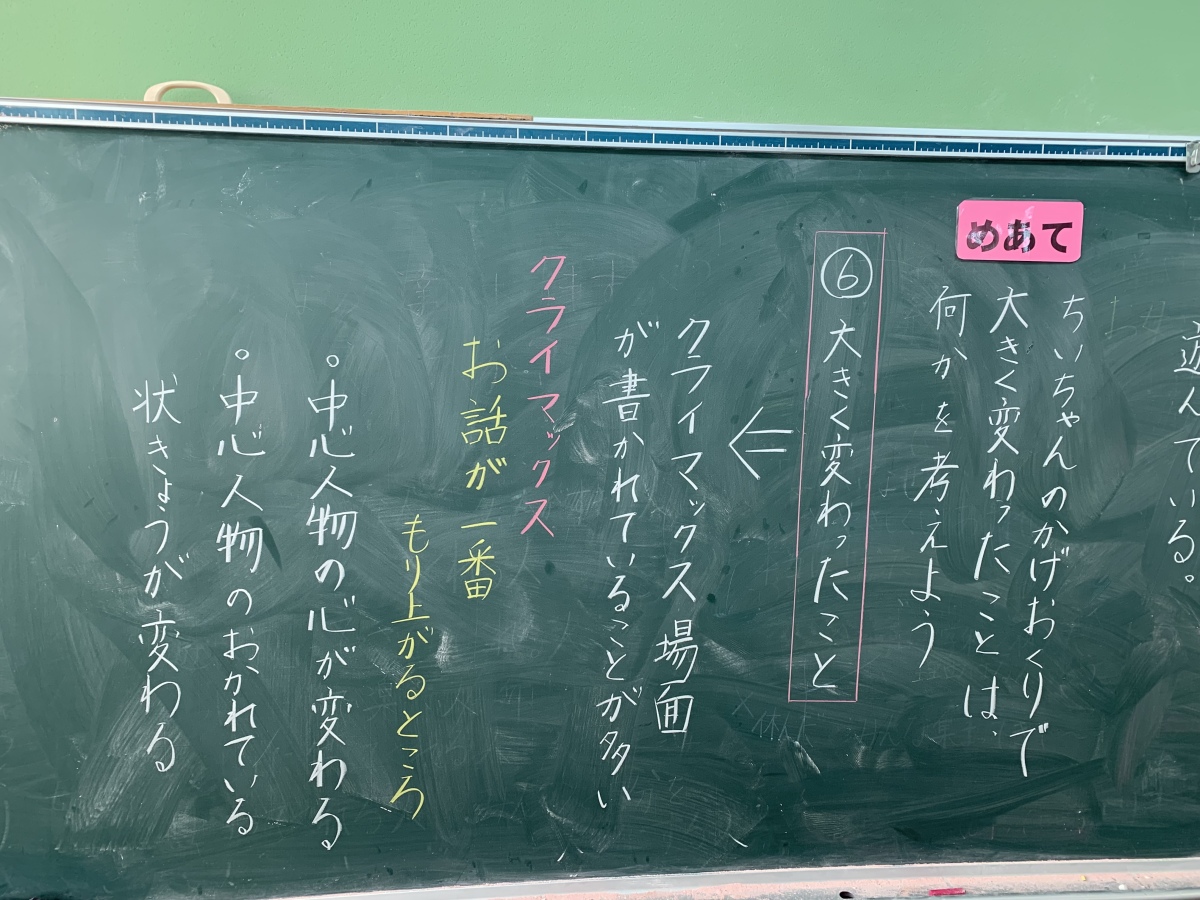 遊んでいる。
めあて
ちいちゃんのかげおくりで
大きく変わったことは、
何かを考えよう
⑥大きく変わったこと
クライマックス場面
が書かれていることが多い
クライマックス
お話が一番
もり上がるところ
。中心人物の心が変わる
。中心人物のおかれている
状きょうが変わる